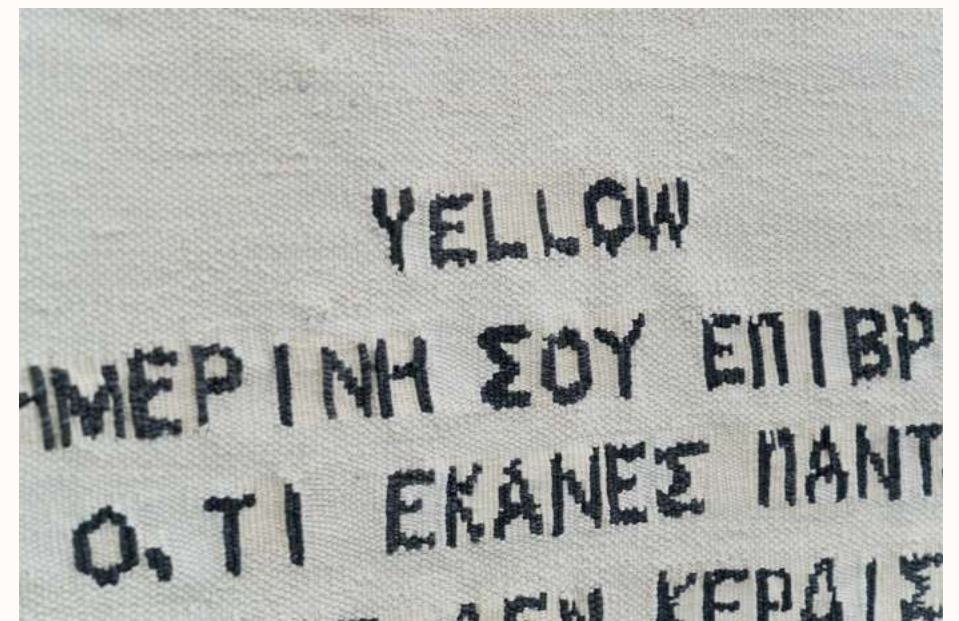 YELLOW
ΗΜΕΡΙΝΗ ΣΟΥ ΕΠΙΒΡ
Ο,ΤΙ ΕΚΑΝΕΣ ΠΑΝΤ
ΔΕΝ ΚΕΡΔΙΣ